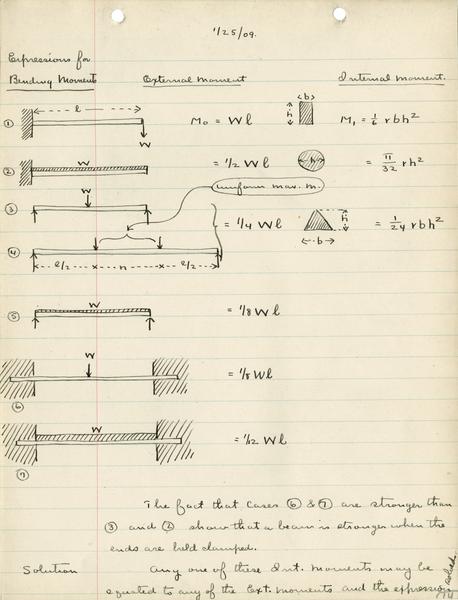 1/25/09.
Expressions for
Bending Moments External moment Internal moment.
① l W M₀ = Wl b h M₁ = 1/6 r b h²
② W = 1/2 Wl h = π/32 r h³
uniform max. m.
③ W = 1/4 Wl h b = 1/24 r b h²
④ l/2 n l/2
⑤ W = 1/8 Wl
⑥ W = 1/8 Wl
⑦ W = 1/12 Wl
The fact that cases ⑥ & ⑦ are stronger than
③ and ② show that a beam is stronger when the
ends are held clamped.
Solution Any one of these Int. moments may be
equated to any of the Ext. moments and the expression
solved